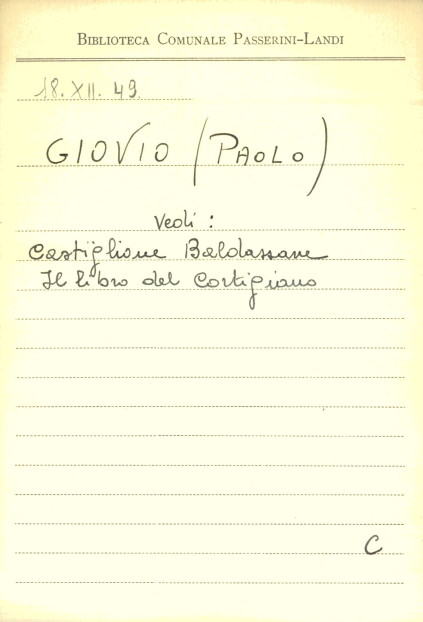 BIBLIOTECA COMUNALE PASSERINI-LANDI
18.XII.49.
GIOVIO (PAOLO)
Vedi:
Castiglione Baldassarre
Il libro del Cortigiano
C